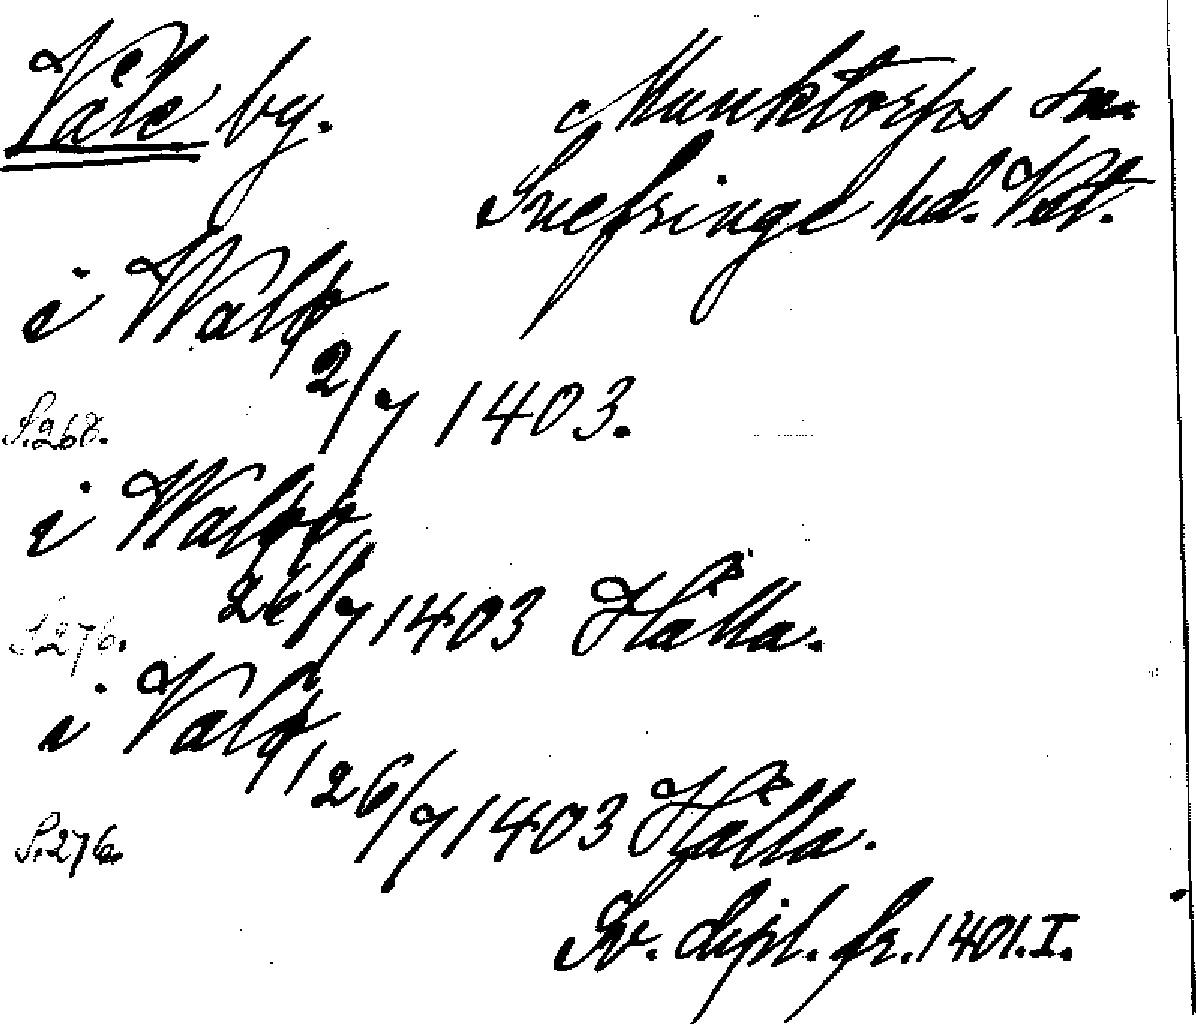 Våle by. Munktorps sn.
Snefringe hd. Vstl.
i Walp
2/7 1403.
S. 268.
i Walpp
26/7 1403 Hälla.
S. 276.
i Valp
26/7 1403 Hälla.
S. 276.
Sv. dipl. fr. 1401. I.